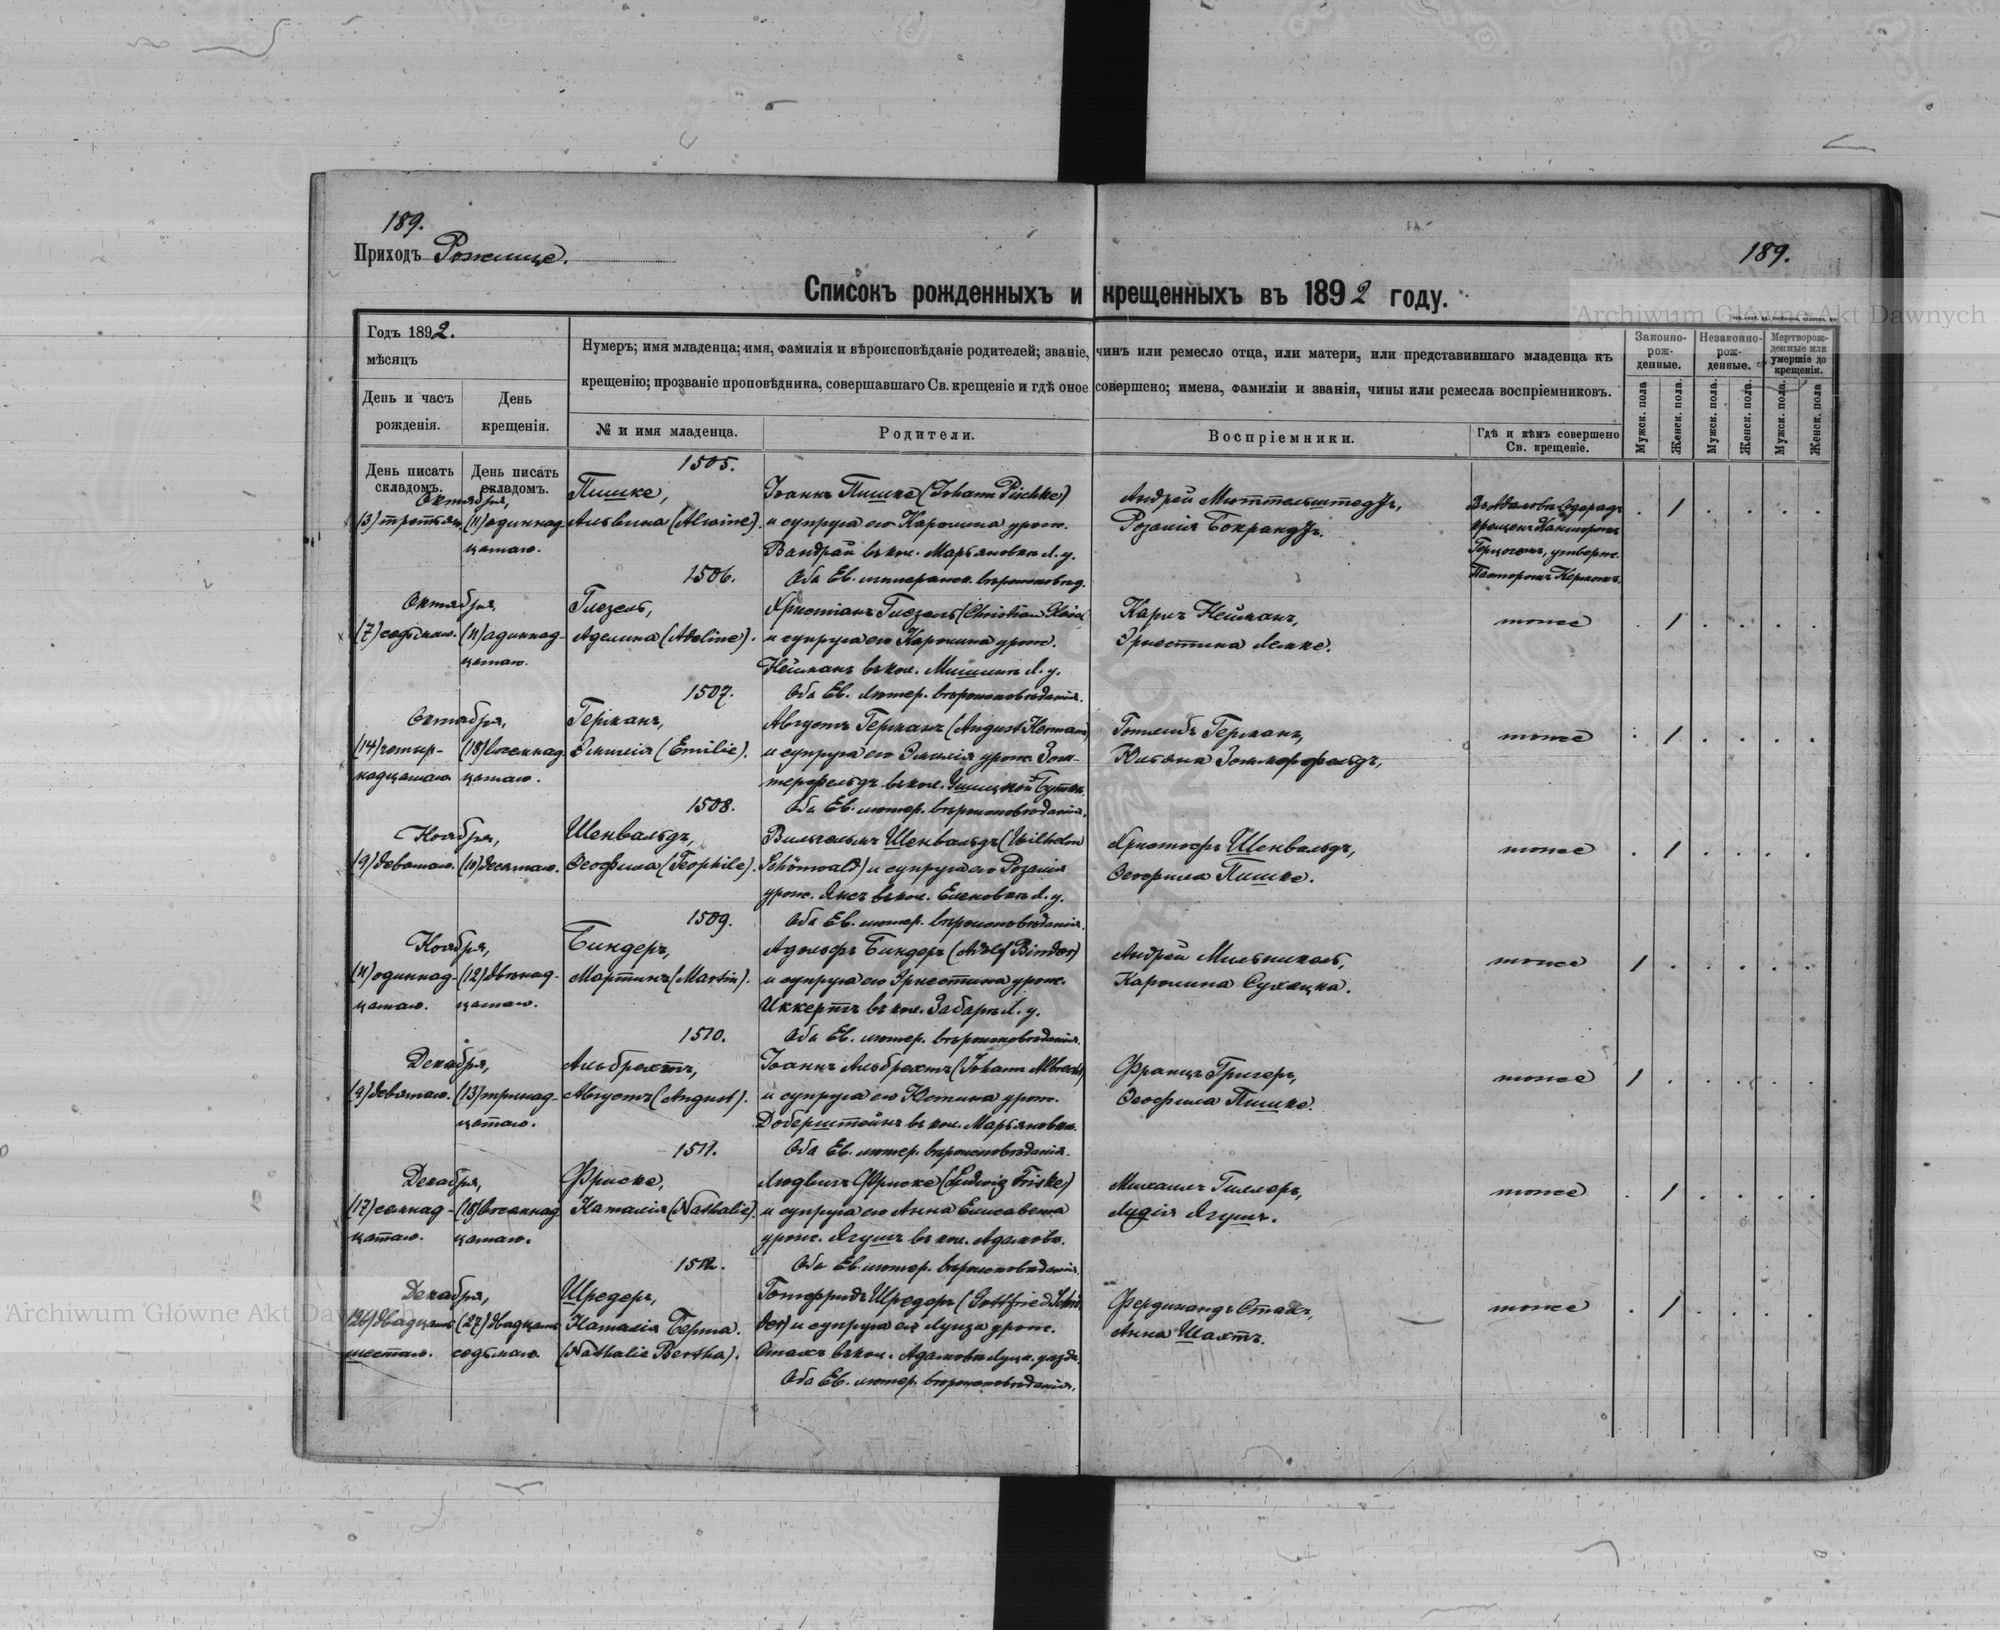 189.
Приходъ Рожище.
189.
Списокъ рожденныхъ и крещенныхъ въ 1892 году.
Archiwum Główne Akt Dawnych
Годъ 1892.
мѣсяцъ
Нумеръ; имя младенца; имя, фамилія и вѣроисповѣданіе родителей; званіе, чинъ или ремесло отца, или матери, или представившаго младенца къ
крещенію; прозваніе проповѣдника, совершавшаго Св. крещеніе и гдѣ оное совершено; имена, фамиліи и званія, чины или ремесла воспріемниковъ.
Законно-
рож-
денные.
Незаконно-
рож-
денные.
Мертворож-
денные или
умершіе до
крещенія.
День и часъ
рожденія.
День
крещенія.
№ и имя младенца.
Родители.
Воспріемники.
Гдѣ и кѣмъ совершено
Св. крещеніе.
Мужск. пола
Женск. пола.
Мужск. пола.
Женск. пола.
Мужск. пола.
Женск. пола
День писать
складомъ.
День писать
складомъ.
1505.
Октября,
(3) третьяго (11) одиннад-
цатаго.
Пишке,
Альвина (Alwine).
Іоаннъ Пишке (Johann Pischke)
и супруга его Каролина урож.
Вандрай въ кол. Марьяновка Л. у.
Оба Ев. лютеранск. вѣроисповѣд.
Андрей Миттельштедтъ,
Розалія Бокрандтъ.
крещенъ Канторомъ
утвержд.
Пасторомъ Кёрномъ.
. 1 . . . .
1506.
Октября
(7) седьмаго. (11) одиннад-
цатаго.
Глезель,
Аделина (Adeline).
Христіанъ Глезель (Christian Gläsel
и супруга его Каролина урож.
Нейманъ въ кол. Л. у.
Оба Ев. Лютер. вѣроисповѣданія.
Карлъ Нейманъ,
Эрнестина Лемке.
тоже
. 1 . . . .
1507.
Октября,
(14) четыр- (18) восемнад-
надцатаго цатаго.
Германъ,
Эмилія (Emilie).
Августъ Германъ (August Hermann)
и супруга его Эмилія урож. Зом-
мерфельдъ въ кол.
Оба Ев. лютер. вѣроисповѣданія.
Готлибъ Германъ,
Юльяна Зоммерфельдъ,
тоже
. 1 . . . .
1508.
Ноября,
(9) девятаго. (10) десятаго.
Шенвальдъ,
Ѳеофила (Teophile).
Вильгельмъ Шенвальдъ (Wilhelm
Schönwald) и супруга его Розалія
урож. Янсъ въ кол. Еленовка Л. у.
Оба Ев. лютер. вѣроисповѣданія.
Христофъ Шенвальдъ,
Ѳеофила Пишке.
тоже
. 1 . . . .
1509.
Ноября,
(11) одиннад- (12) двѣнад-
цатаго. цатаго.
Биндеръ,
Мартинъ (Martin).
Адольфъ Биндеръ (Adolf Binder)
и супруга его Эрнестина урож.
Иккертъ въ кол. Забара Л. у.
Оба Ев. лютер. вѣроисповѣданія.
Андрей Мильникель,
Каролина Сухацка.
тоже
1 . . . . .
1510.
Декабря,
(9) девятаго. (13) тринад-
цатаго.
Альбрехтъ,
Августъ (August).
Іоаннъ Альбрехтъ (Johann Albrecht)
и супруга его Юстина урож.
Доберштейнъ въ кол. Марьяновка.
Оба Ев. лютер. вѣроисповѣданія.
Францъ Григеръ,
Ѳеофила Пишке.
тоже
1 . . . . .
1511.
Декабря,
(17) семнад- (18) восемнад-
цатаго. цатаго.
Фриске,
Наталія (Nathalie).
Людвигъ Фриске (Ludwig Friske)
и супруга его Анна Елисавета
урож. Ягушъ въ кол. Адамовъ.
Оба Ев. лютер. вѣроисповѣданія.
Михаилъ Гиллеръ,
Лидія Ягушъ.
тоже
. 1 . . . .
1512.
Декабря,
(26) двадцать (27) двадцать
шестаго. седьмаго.
Шредеръ,
Наталія Берта.
(Nathalie Bertha).
Готфридъ Шредеръ (Gottfried Schrö-
der) и супруга его Луиза урож.
Стахъ въ кол. Адамовка Луцк. уѣзда.
Оба Ев. лютер. вѣроисповѣданія.
Фердинандъ Стахъ,
Анна Шахтъ.
тоже
. 1 . . . .
Archiwum Główne Akt Dawnych